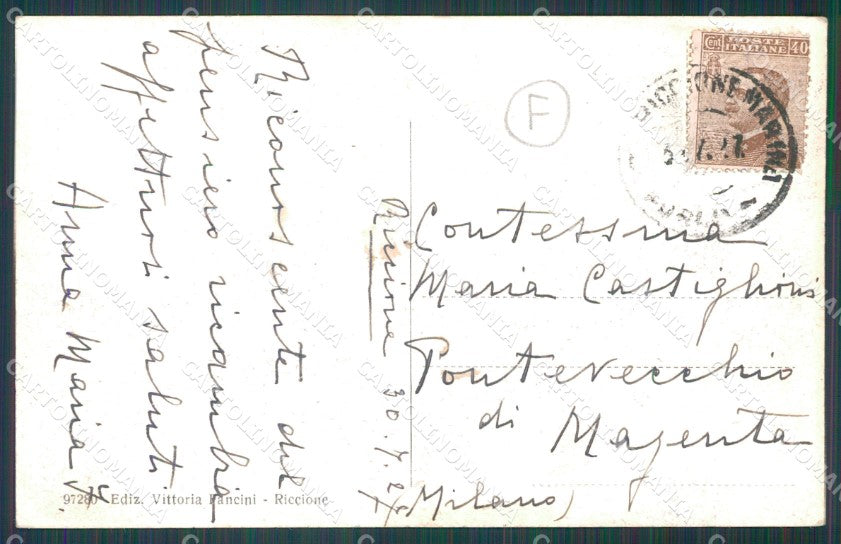 Riconoscente del
pensiero ricambia
affettuosi saluti
Anna Maria F.
Riccione 30.7.27
Contessina
Maria Castiglioni
Pontevecchio
di Magenta
(Milano)
F
CENT. POSTE ITALIANE 40
RICCIONE-MARINA
97280 Ediz. Vittoria Pancini - Riccione
CARTOLINOMANIA